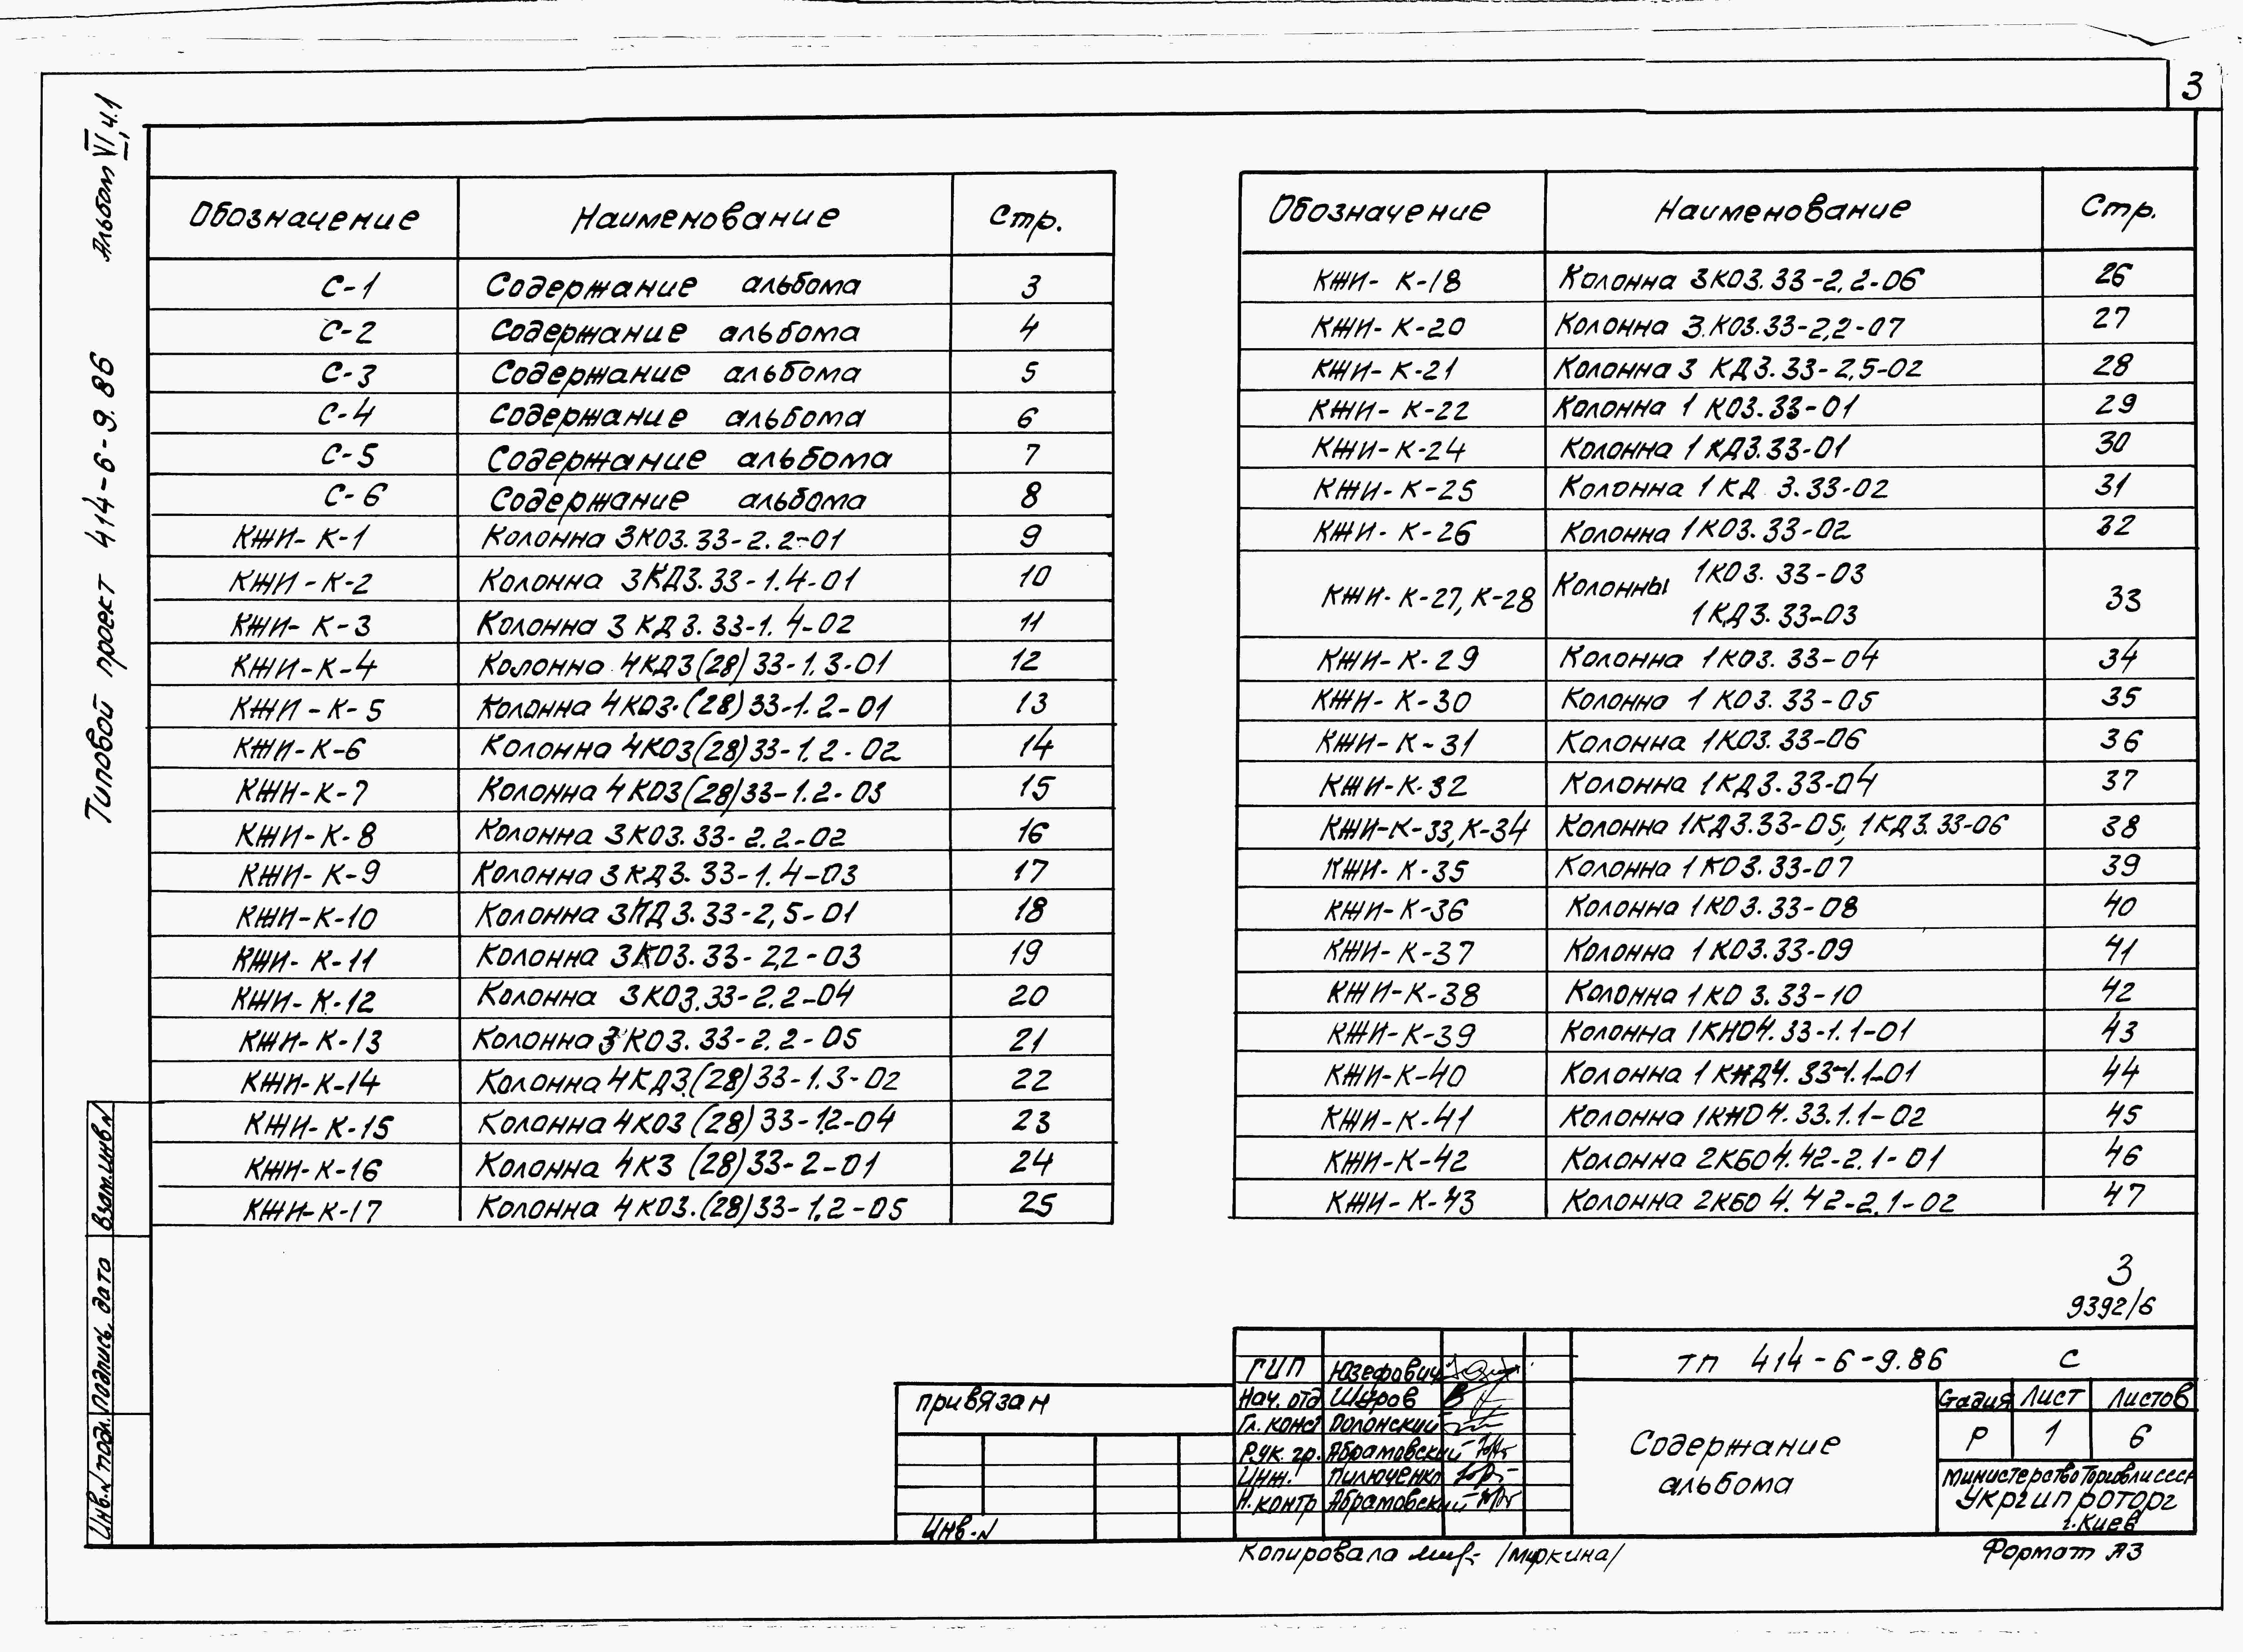 3
Альбом VI, ч.1
Типовой проект 414-6-9.86
Обозначение Наименование Стр.
С-1 Содержание альбома 3
С-2 Содержание альбома 4
С-3 Содержание альбома 5
С-4 Содержание альбома 6
С-5 Содержание альбома 7
С-6 Содержание альбома 8
КЖИ-К-1 Колонна 3КО3.33-2.2-01 9
КЖИ-К-2 Колонна 3КД3.33-1.4-01 10
КЖИ-К-3 Колонна 3КД3.33-1.4-02 11
КЖИ-К-4 Колонна 4КД3(28)33-1.3-01 12
КЖИ-К-5 Колонна 4КО3.(28)33-1.2-01 13
КЖИ-К-6 Колонна 4КО3(28)33-1.2-02 14
КЖИ-К-7 Колонна 4КО3(28)33-1.2-03 15
КЖИ-К-8 Колонна 3КО3.33-2.2-02 16
КЖИ-К-9 Колонна 3КД3.33-1.4-03 17
КЖИ-К-10 Колонна 3КД3.33-2,5-01 18
КЖИ-К-11 Колонна 3КО3.33-2,2-03 19
КЖИ-К-12 Колонна 3КО3.33-2.2-04 20
КЖИ-К-13 Колонна 3КО3.33-2.2-05 21
КЖИ-К-14 Колонна 4КД3(28)33-1.3-02 22
КЖИ-К-15 Колонна 4КО3(28)33-1.2-04 23
КЖИ-К-16 Колонна 4К3 (28)33-2-01 24
КЖИ-К-17 Колонна 4КО3.(28)33-1.2-05 25
Обозначение Наименование Стр.
КЖИ-К-18 Колонна 3КО3.33-2,2-06 26
КЖИ-К-20 Колонна 3.КО3.33-2,2-07 27
КЖИ-К-21 Колонна 3 КД3.33-2,5-02 28
КЖИ-К-22 Колонна 1 КО3.33-01 29
КЖИ-К-24 Колонна 1 КД3.33-01 30
КЖИ-К-25 Колонна 1 КД 3.33-02 31
КЖИ-К-26 Колонна 1КО3.33-02 32
КЖИ-К-27, К-28 Колонны 1КО3.33-03
1КД3.33-03 33
КЖИ-К-29 Колонна 1КО3.33-04 34
КЖИ-К-30 Колонна 1 КО3.33-05 35
КЖИ-К-31 Колонна 1КО3.33-06 36
КЖИ-К-32 Колонна 1КД3.33-04 37
КЖИ-К-33, К-34 Колонна 1КД3.33-05; 1КД3.33-06 38
КЖИ-К-35 Колонна 1 КО3.33-07 39
КЖИ-К-36 Колонна 1КО3.33-08 40
КЖИ-К-37 Колонна 1 КО3.33-09 41
КЖИ-К-38 Колонна 1КО 3.33-10 42
КЖИ-К-39 Колонна 1КНО4.33-1.1-01 43
КЖИ-К-40 Колонна 1 КНД4.33-1.1-01 44
КЖИ-К-41 Колонна 1КНО4.33.1.1-02 45
КЖИ-К-42 Колонна 2КБО4.42-2.1-01 46
КЖИ-К-43 Колонна 2КБО4.42-2.1-02 47
3
9392/6
Взам.инв.N
Подпись, дата
Инв.N подл.
привязан
Инв.N
ГИП Юзефович
Нач.отд Шуров
Гл.конст Полонский
Рук.гр. Абрамовский
Инж. Пилюченко
Н.контр Абрамовский
тп 414-6-9.86 С
Содержание
альбома
Стадия Лист Листов
Р 1 6
Министерство Торговли СССР
Укргипроторг
г.Киев
Копировала /Муркина/
Формат А3